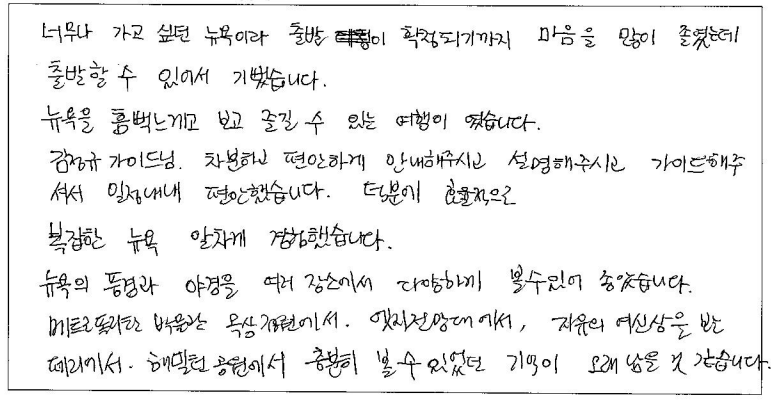 너무나 가고 싶던 뉴욕이라 출발 이 확정되기까지 마음을 많이 졸였는데
출발할 수 있어서 기뻤습니다.
뉴욕을 흠뻑느끼고 보고 즐길 수 있는 여행이 였습니다.
김정규 가이드님. 차분하고 편안하게 안내해주시고 설명해주시고 가이드해주
셔서 일정내내 편안했습니다. 덕분에 효율적으로
복잡한 뉴욕 알차게 경험했습니다.
뉴욕의 풍경과 야경을 여러 장소에서 다양하게 볼수있어 좋았습니다.
메트로폴리탄 박물관 옥상정원에서. 엣지전망대에서, 자유의 여신상을 보는
페리에서. 해밀턴공원에서 충분히 볼 수 있었던 기억이 오래 남을 것 같습니다.